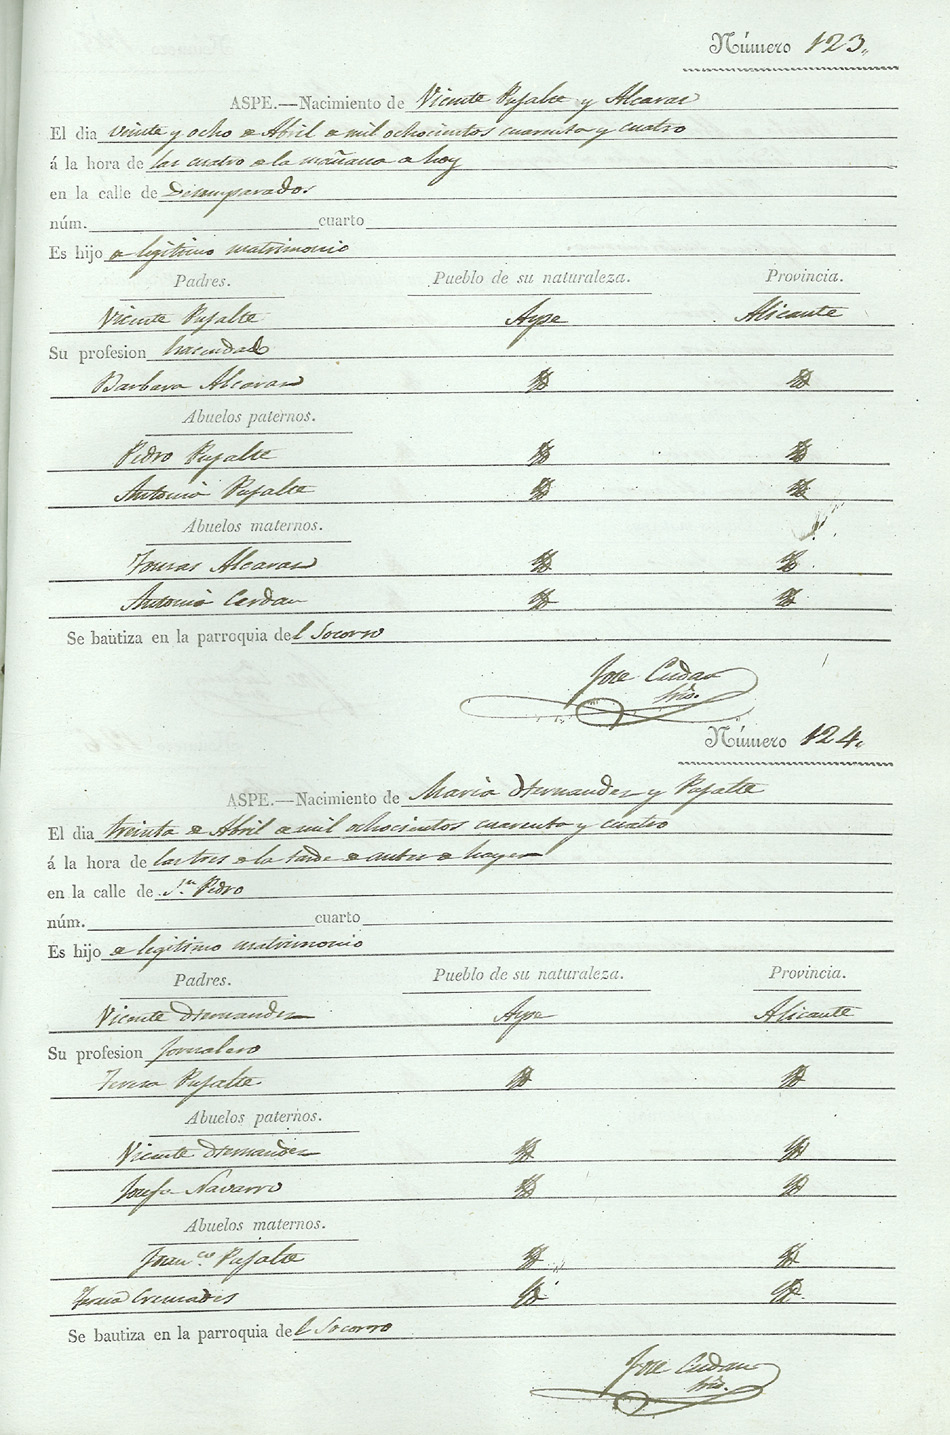 Número 123.
ASPE.—Nacimiento de Vicente Pujalte y Alcaras
El dia veinte y ocho de Abril de mil ochocientos cuarenta y cuatro
á la hora de las cuatro de la mañana de hoy
en la calle de Desamparados
núm. cuarto
Es hijo de legitimo matrimonio
Padres. Pueblo de su naturaleza. Provincia.
Vicente Pujalte Aspe Alicante
Su profesion hacendado
Barbara Alcaras Id Id
Abuelos paternos.
Pedro Pujalte Id Id
Antonia Pujalte Id Id
Abuelos maternos.
Tomas Alcaras Id Id
Antonia Cerdan Id Id
Se bautiza en la parroquia del Socorro
Jose Cerdan
Número 124.
ASPE.—Nacimiento de Maria Hernandez y Pujalte
El dia treinta de Abril de mil ochocientos cuarenta y cuatro
á la hora de las tres de la tarde de antes de hayer
en la calle de Sn. Pedro
núm. cuarto
Es hijo de legitimo matrimonio
Padres. Pueblo de su naturaleza. Provincia.
Vicente Hernandez Aspe Alicante
Su profesion jornalero
Teresa Pujalte Id Id
Abuelos paternos.
Vicente Hernandez Id Id
Josefa Navarro Id Id
Abuelos maternos.
Franco. Pujalte Id Id
Teresa Cremades Id Id
Se bautiza en la parroquia del Socorro
Jose Cerdan